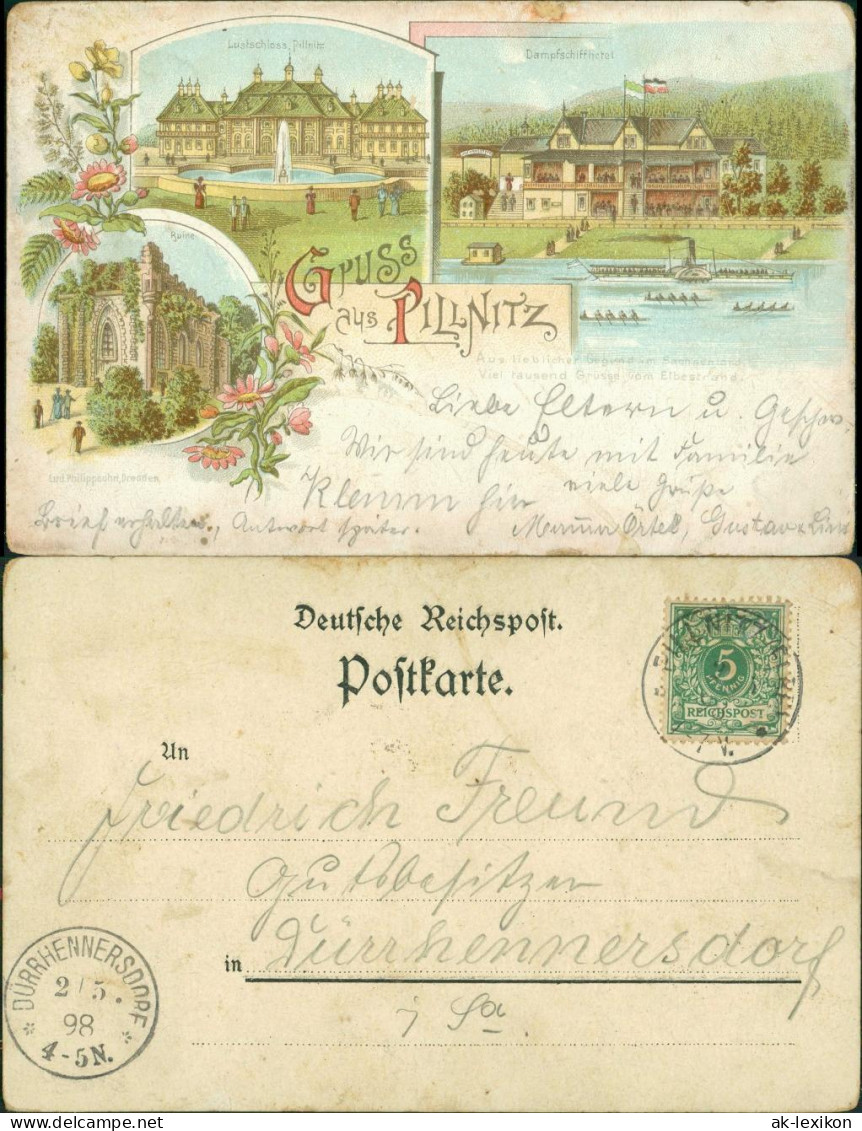 Lustschloss Pillnitz
Dampfschiffhotel
Ruine
Gruss
aus Pillnitz
Aus lieblicher Gegend im Sachsenland
Viel tausend Grüsse vom Elbestrand.
Liebe Eltern u. Geschw.
Wir sind heute mit Familie
Klemm hin viele Grüße
Brief erhalten, Antwort später. Mama Örtel, Gustav u. Lina
Lud. Philippsohn, Dresden.
Deutsche Reichspost.
Postkarte.
PILLNITZ
5
PFENNIG
REICHSPOST
An
Friedrich Freund
Gutsbesitzer
in Dürrhennersdorf
i Sa.
DÜRRHENNERSDORF
2/5.
98
4-5N.
www.ansichtskarten-lexikon.de
ak-lexikon